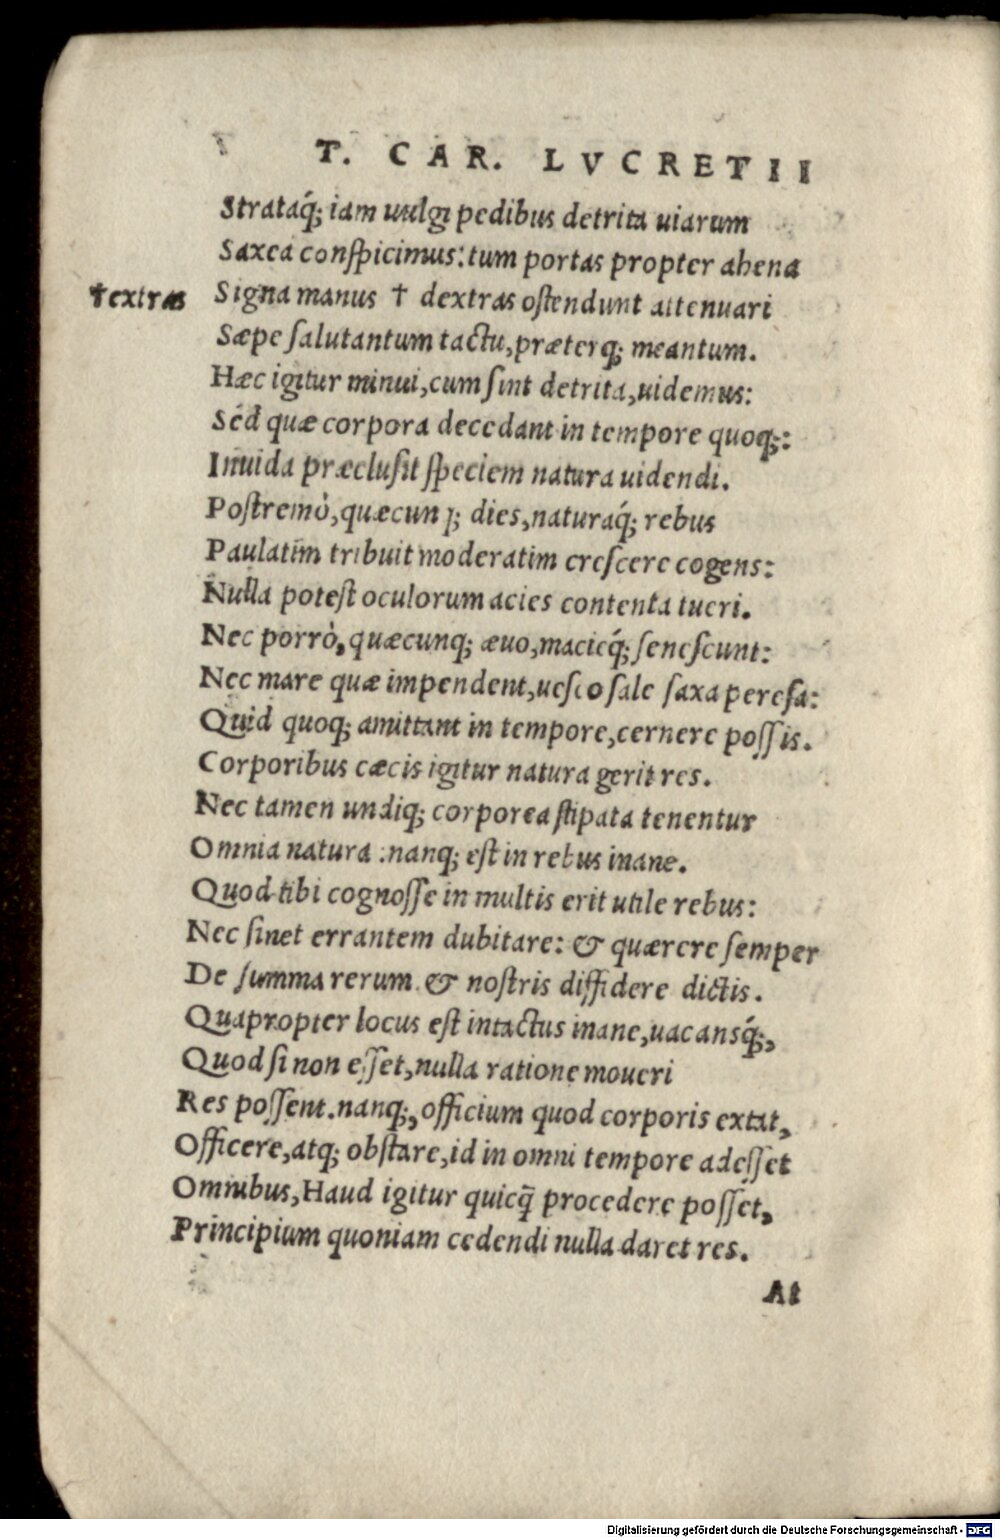 T. CAR. LVCRETII
Strataq́; iam uulgi pedibus detrita uiarum
Saxea conſpicimus: tum portas propter ahena
†extras Signa manus † dextras oſtendunt attenuari
Sæpe ſalutantum tactu, præterq; meantum.
Hæc igitur minui, cum ſint detrita, uidemus:
Sed quæ corpora decedant in tempore quoq;:
Inuida præcluſit ſpeciem natura uidendi.
Poſtremò, quæcunq; dies, naturaq́; rebus
Paulatim tribuit moderatim creſcere cogens:
Nulla poteſt oculorum acies contenta tueri.
Nec porrò, quæcunq; æuo, macieq́; ſeneſcunt:
Nec mare quæ impendent, ueſco ſale ſaxa pereſa:
Quid quoq; amittant in tempore, cernere poſſis.
Corporibus cæcis igitur natura gerit res.
Nec tamen undiq; corporea ſtipata tenentur
Omnia natura: nanq; eſt in rebus inane.
Quod tibi cognoſſe in multis erit utile rebus:
Nec ſinet errantem dubitare: & quærere ſemper
De ſumma rerum & noſtris diffidere dictis.
Quapropter locus eſt intactus inane, uacansq́;,
Quod ſi non eſſet, nulla ratione moueri
Res poſſent. nanq;, officium quod corporis extat,
Officere, atq; obſtare, id in omni tempore adeſſet
Omnibus, Haud igitur quicq̃ procedere poſſet,
Principium quoniam cedendi nulla daret res.
At
Digitalisierung gefördert durch die Deutsche Forschungsgemeinschaft - DFG